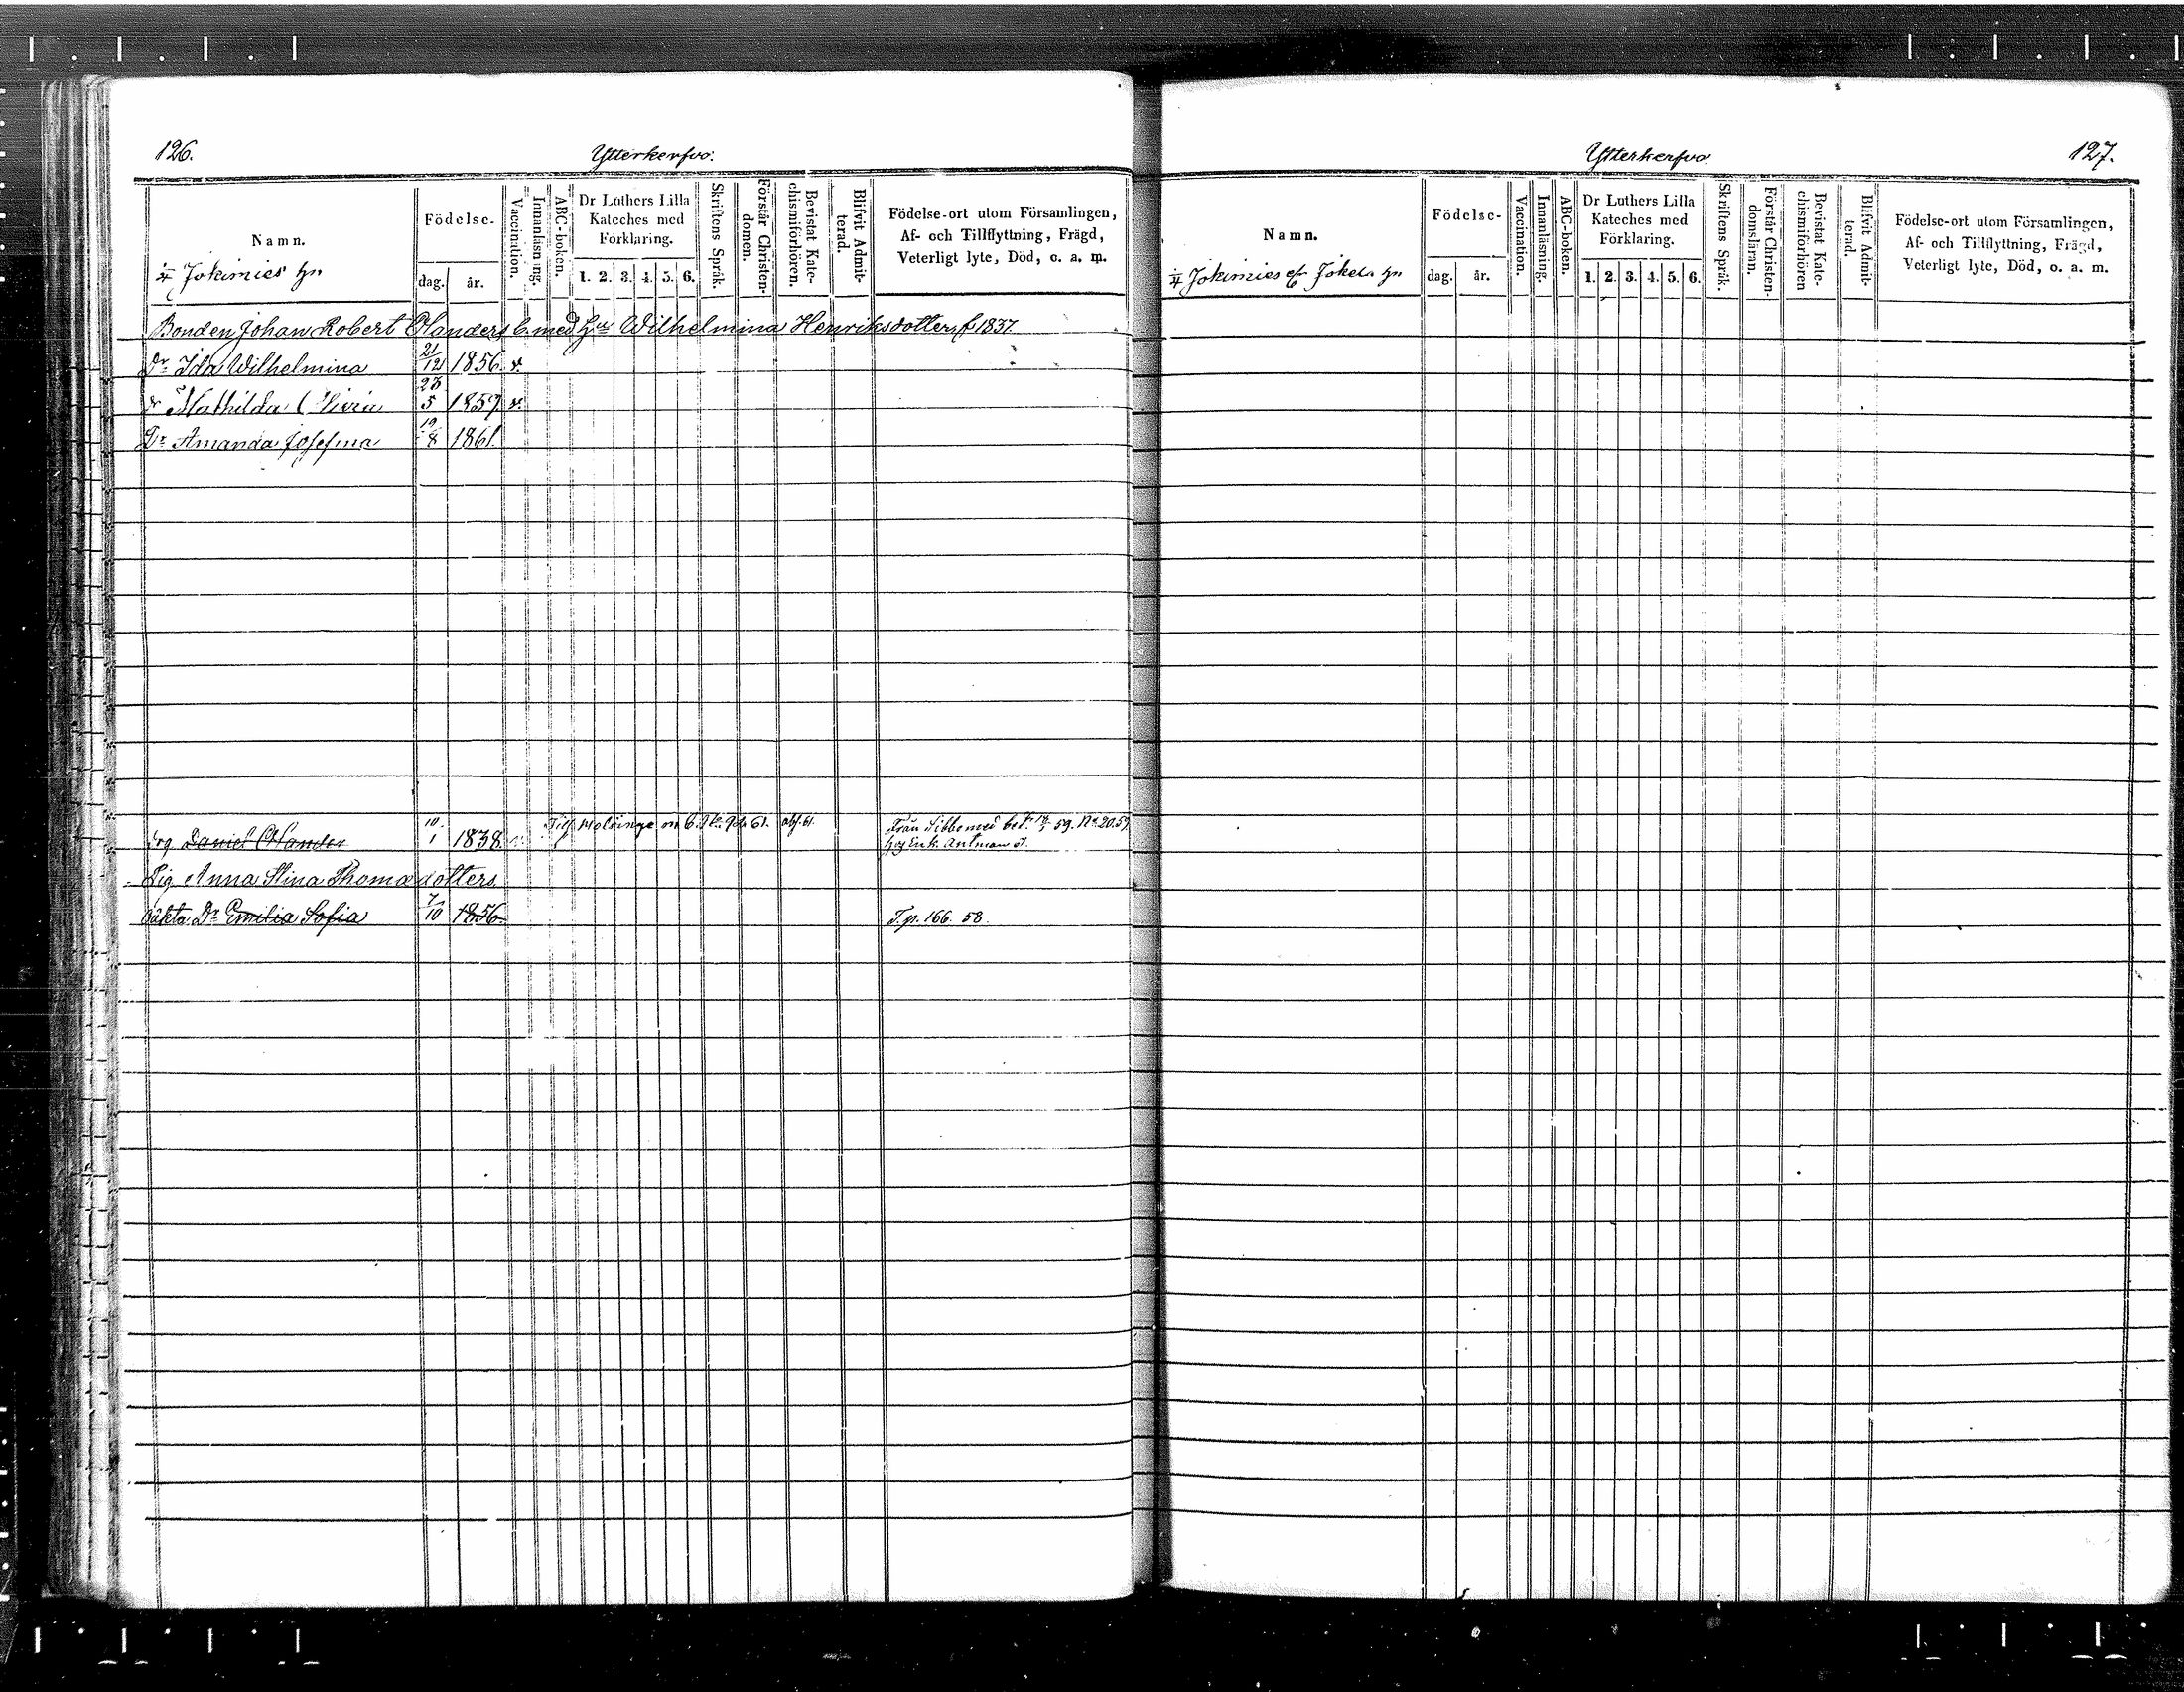 126.
Ytterkerfvo.
Namn.
Födelse.
dag. år.
Vaccination.
Innanläsning.
ABC-boken.
Dr Luthers Lilla
Kateches med
Förklaring.
1. 2. 3. 4. 5. 6.
Skriftens Språk.
Förstår Christen-
domen.
Bevistat Kate-
chismiförhören.
Blifvit Admit-
terad.
Födelse-ort utom Församlingen,
Af- och Tillflyttning, Frägd,
Veterligt lyte, Död, o. a. m.
Jokimies hn
Bonden Johan Robert Olanders b. med Hu Wilhelmina Henriksdotter, f 1837.
Dr Ida Wilhelmina 21/12 1856. v.
Dr Mathilda Olivia 23/5 1859. v.
Dr Amanda Josefina 19/8 1861.
Daniel Olander 10/1 1838. 61. abs. 61. Från Sibbo med bet. 59. No 20. 59
Pig Anna Stina Thomadotters
oäkta Dr Emilia Sofia 7/10 1856. T. p. 166. 58.
Ytterkerfvo.
127.
Namn.
Födelse-
dag. år.
Vaccination.
Innanläsning.
ABC-boken.
Dr Luthers Lilla
Kateches med
Förklaring.
1. 2. 3. 4. 5. 6.
Skriftens Språk.
Förstår Christen-
domsläran.
Bevistat Kate-
chismiförhören
Blifvit Admit-
terad.
Födelse-ort utom Församlingen,
Af- och Tillflyttning, Frägd,
Veterligt lyte, Död, o. a. m.
Jokimies Jokela hn